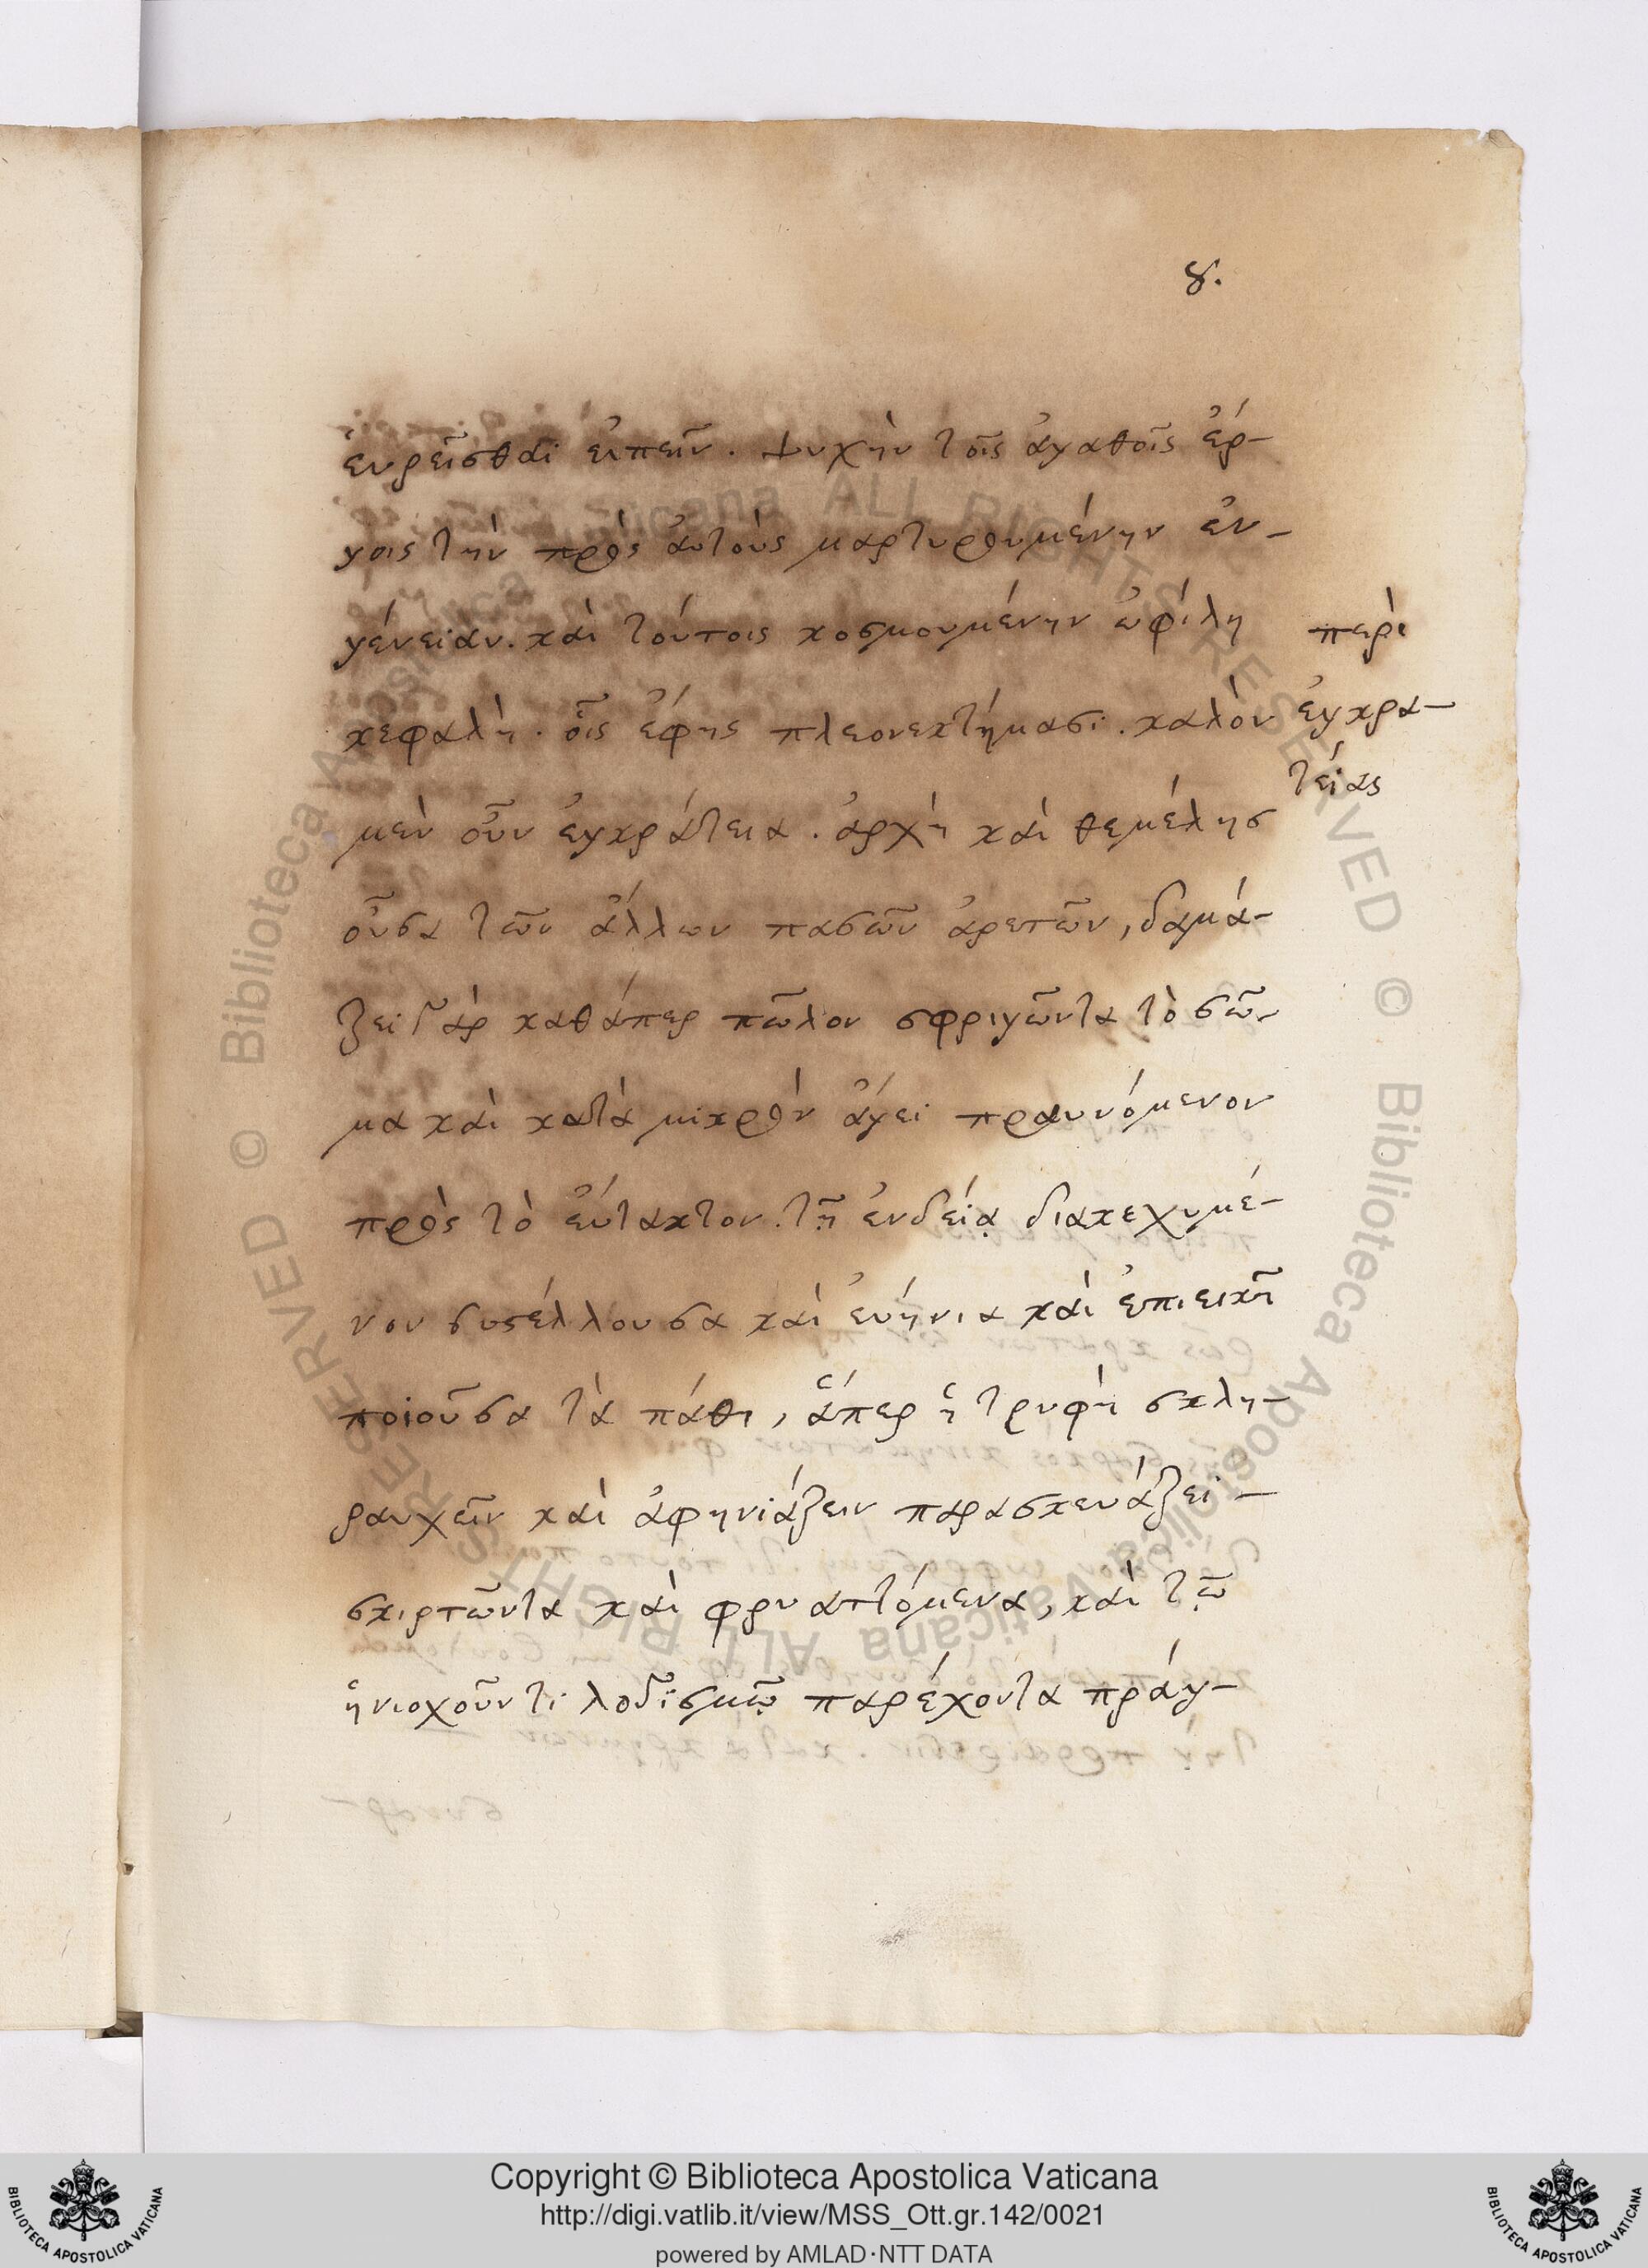 8.
εὑρεῖσθαι εἰπεῖν. ψυχὴν τοῖς ἀγαθοῖς ἔρ-
γοις τὴν πρὸς αὐτοὺς μαρτυρουμένην ἐν-
γένειαν. καὶ τούτοις κοσμουμένην ὦ φίλη
περὶ
κεφαλὴ. οἷς ἔφης πλεονεκτήμασι. καλὸν
ἐγκρα-
τείας
μὲν οὖν ἐγκράτεια. ἀρχὴ καὶ θεμέλησ
οὖσα τῶν ἄλλων πασῶν ἀρετῶν, δαμά-
ζει γὰρ καθάπερ πῶλον σφριγῶντα τὸ σῶ-
μα καὶ κατὰ μικρὸν ἄγει πραυνόμενον
πρὸς τὸ εὔτακτον. τῇ ἐνδείᾳ διακεχυμέ-
νον συστέλλουσα καὶ εὐήνια καὶ ἐπιεικῆ
ποιοῦσα τὰ πάθη, ἅπερ ἡ τρυφὴ σκλη-
ραυχεῖν καὶ ἀφηνιάζειν παρασκευάζει -
σκιρτῶντα καὶ φρυαττόμενα, καὶ τῷ
ἡνιοχοῦντι λογισμῷ παρέχοντα πράγ-
Copyright © Biblioteca Apostolica Vaticana
http://digi.vatlib.it/view/MSS_Ott.gr.142/0021
powered by AMLAD·NTT DATA
BIBLIOTECA APOSTOLICA VATICANA
BIBLIOTECA APOSTOLICA VATICANA
© Biblioteca Apostolica Vaticana ALL RIGHTS RESERVED
© Biblioteca Apostolica Vaticana ALL RIGHTS RESERVED